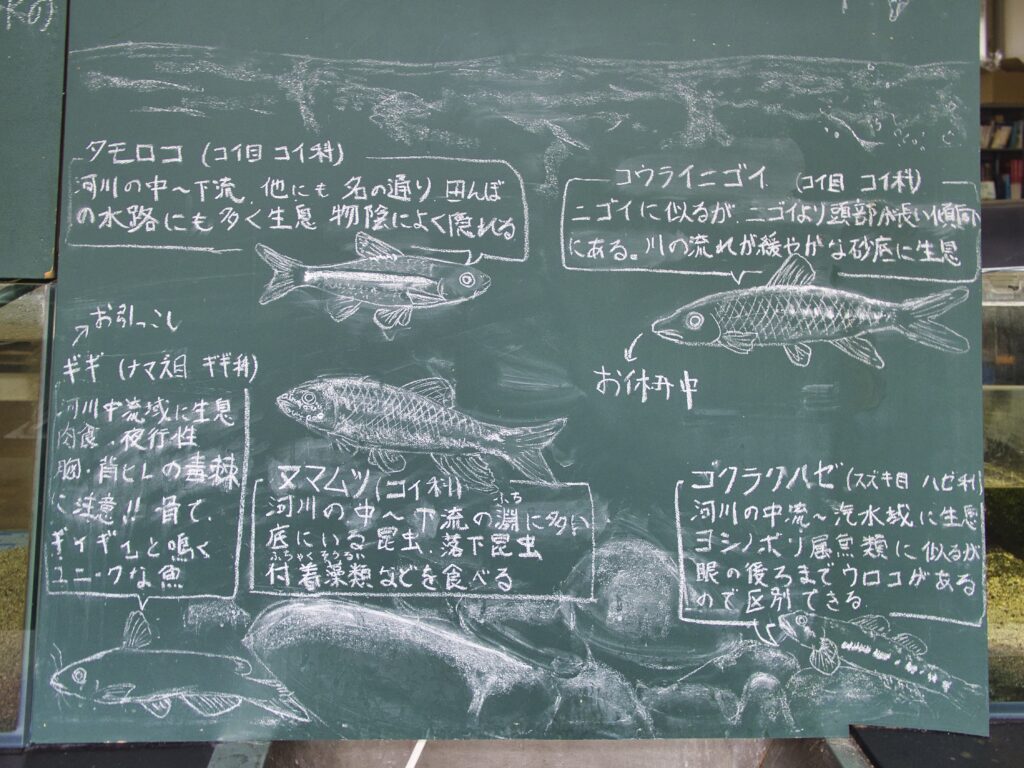 タモロコ (コイ目 コイ科)
河川の中~下流、他にも 名の通り 田んぼ
の水路にも多く生息 物陰によく隠れる
コウライニゴイ (コイ目 コイ科)
ニゴイに似るが、ニゴイより頭部が長い傾向
にある。川の流れが緩やかな砂底に生息
お休み中
お引っこし
ギギ (ナマズ目 ギギ科)
河川中流域に生息
肉食、夜行性
胸・背ビレの毒棘
に注意!! 骨で、
ギィギィと鳴く
ユニークな魚
ヌマムツ (コイ科)
河川の中~下流の淵に多い
ふち
底にいる昆虫、落下昆虫
ふちゃくそうるい
付着藻類などを食べる
ゴクラクハゼ (スズキ目 ハゼ科)
河川の中流~汽水域に生息
ヨシノボリ属魚類に似るが
眼の後ろまでウロコがある
ので区別できる